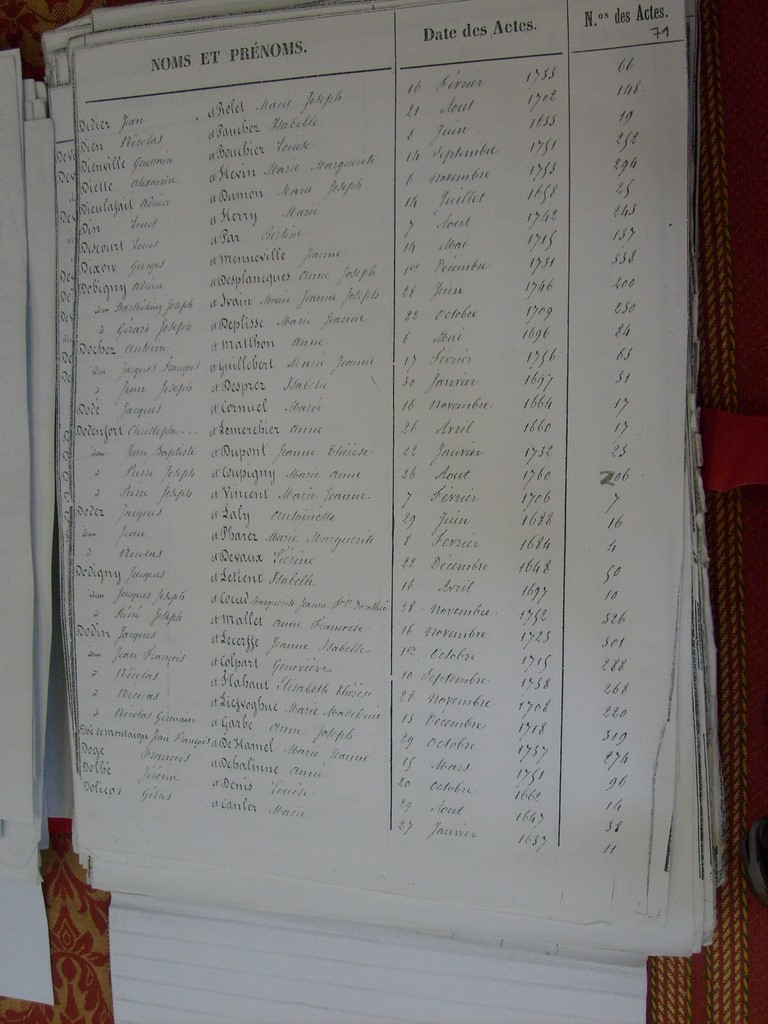 NOMS ET PRÉNOMS. Date des Actes. N.os des Actes.
71
Didier Jean et Rolet Marie Joseph 16 Février 1733 66
Dien Nicolas et Paucher Isabelle 21 Aout 1702 148
Dienville Guislain et Bouchier Louise 8 Juin 1633 19
Diette Alexandre et Hevin Marie Marguerite 14 Septembre 1751 252
Dieulafait Adrien et Dumon Marie Joseph 6 Novembre 1753 294
Din Louis et Herry Marie 14 Juillet 1658 25
Discourt Louis et Par 7 Aout 1742 243
Dixon Georges et Menneville Jeanne 14 Mai 1715 137
Dobigny Adrien et Desplancques Anne Joseph 1er Décembre 1731 338
Barthélémy Joseph et Ivain Marie Jeanne Joseph 28 Juin 1746 200
Gérard Joseph et Deplisse Marie Jeanne 22 Octobre 1709 230
Docher Antoine et Matthon Anne 6 Mai 1696 84
Jacques François et Guillebert Marie Jeanne 17 Février 1756 63
Jean Joseph et Desprez Isabelle 30 Janvier 1647 31
Dodé Jacques et Cornuel Marie 16 Novembre 1664 17
Dodenfort Christophe et Lemerchier Anne 26 Avril 1660 17
Jean Baptiste et Dupont Jeanne Thérèse 22 Janvier 1732 23
Pierre Joseph et Coupigny Marie Anne 26 Aout 1760 206
Pierre Joseph et Vincent Marie Jeanne 7 Février 1706 7
Doder Jacques et Laly Antoinette 29 Juin 1688 16
Jean et Pharez Marie Marguerite 8 Février 1684 4
Nicolas et Devaux 22 Décembre 1648 50
Dodigny Jacques et Letient Isabelle 16 Avril 1697 10
Jacques Joseph et Coeud Marguerite Jeanne 28 Novembre 1752 326
René Joseph et Mallet Anne Françoise 16 Novembre 1723 301
Dodin Jacques et Lecerffe Jeanne Isabelle 1er Octobre 1715 288
Jean François et Colpart Geneviève 10 Septembre 1738 268
Nicolas et Flahaut Elisabeth Thérèse 28 Novembre 1708 220
Nicolas et Liefvoghue Marie Madeleine 13 Décembre 1718 319
Nicolas Germain et Garbe Anne Joseph 29 Octobre 1737 274
Doëdemontaigu Jean François et DeHamel Marie Jeanne 15 Mars 1751 96
Doge François et Dehalinne Anne 20 Octobre 1662 14
Dolbé et Denis Louise 29 Aout 1647 38
Dolicar Gilles et Canler Marie 27 Janvier 1637 11